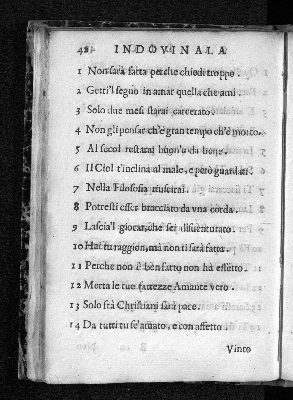 424 INDOVINALA
1 Non sarà fatta perche chiedi troppo.
2 Getti'l seguo in amar quella che ami.
3 Solo due mesi starai carcerato.
4 Non gli pensar ch'è gran tempo ch'è morto.
5 Al secol restarai huon'u da bene.
6 Il Ciel t'inclina al male, e però guardati.
7 Nella Filosofia riuscirai.
8 Potresti esser bracciato da vna corda.
9 Lascia'l giocar, che sei disauenturato.
10 Hai tu raggion, mà non ti sarà fatta.
11 Perche non è ben fatto non hà effetto.
12 Merta le tue fattezze Amante vero.
13 Solo frà Christiani sarà pace.
14 Da tutti tu se'amato, e con affetto.
Vinto